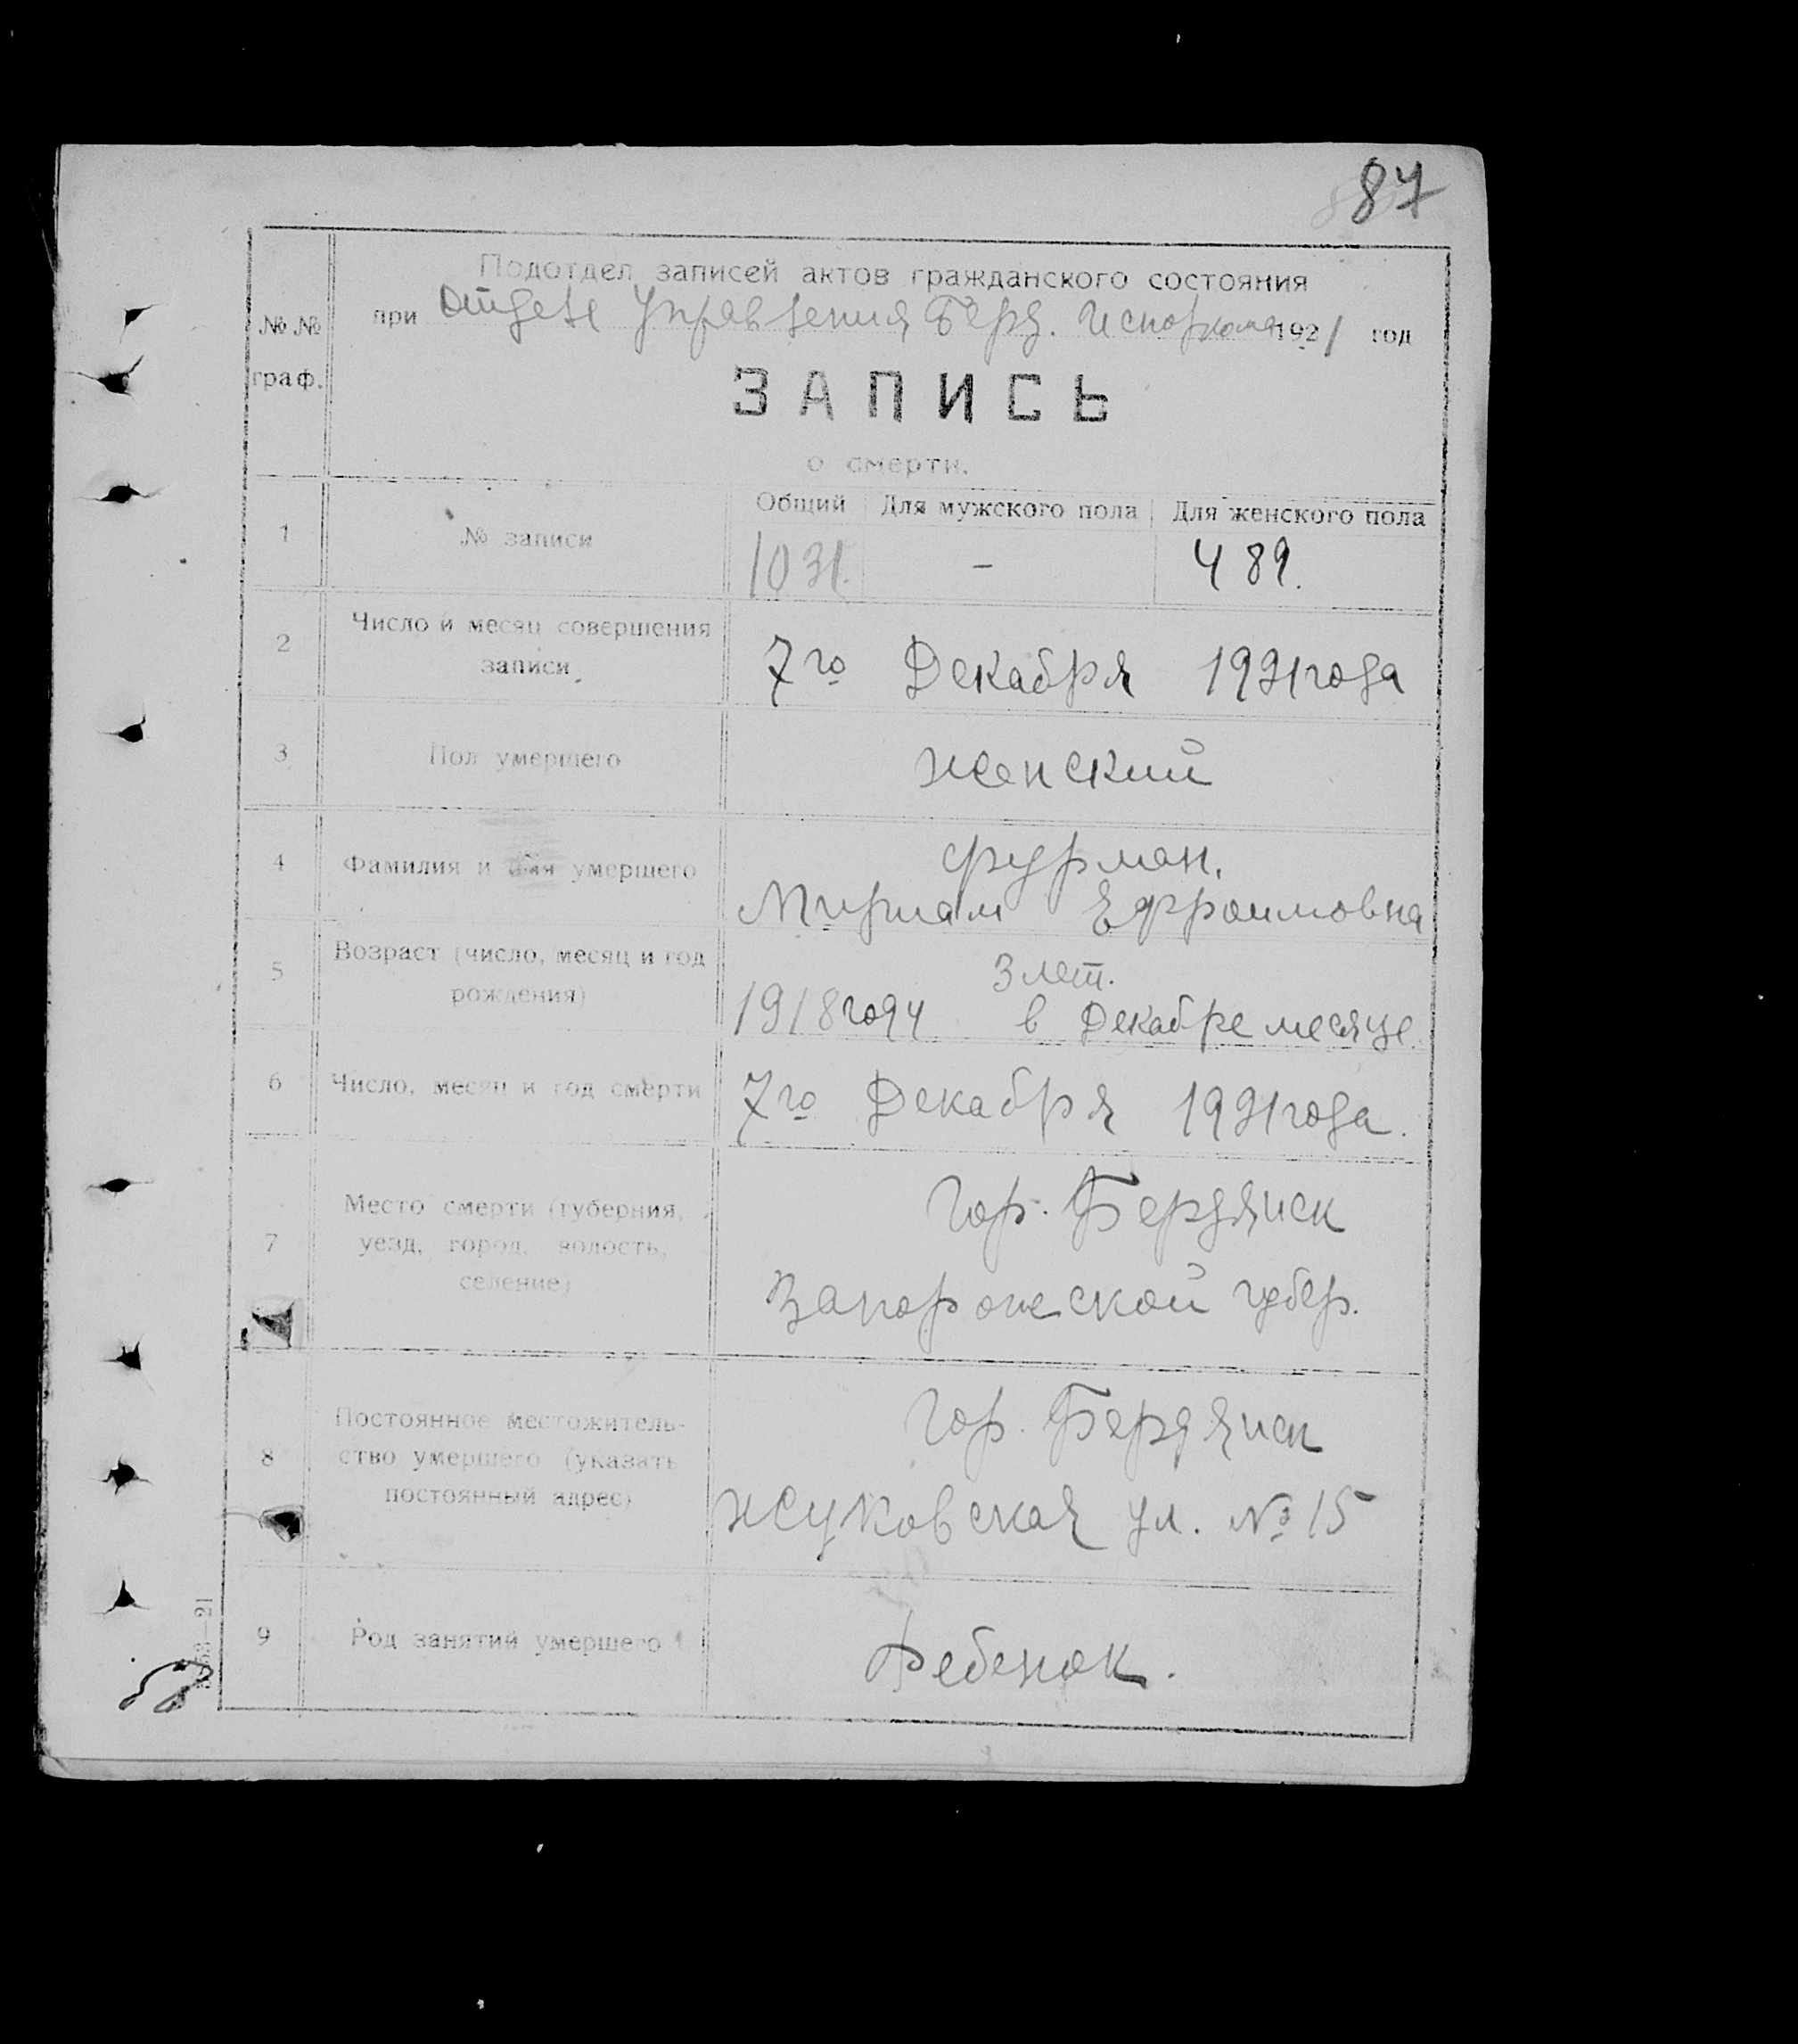 87
Подотдел записей актов гражданского состояния
№ №
граф.
при отделе Управления Берд. Исполкома 1921 год
ЗАПИСЬ
о смерти.
Общий Для мужского пола Для женского пола
1 № записи 1031. – 489.
2 Число и месяц совершения
записи
7го Декабря 1921 года
3 Пол умершего женский
4 Фамилия и имя умершего Фурман,
Мириам Ефроимовна
5 Возраст (число, месяц и год
рождения)
3 лет.
1918 году в Декабре месяце.
6 Число, месяц и год смерти 7го Декабря 1921 года.
7 Место смерти (губерния,
уезд, город, волость,
селение)
Гор. Бердянск
Запорожской губер.
8 Постоянное местожитель-
ство умершего (указать
постоянный адрес)
Гор. Бердянск
Жуковская ул. № 15
9 Род занятий умершего Ребенок.